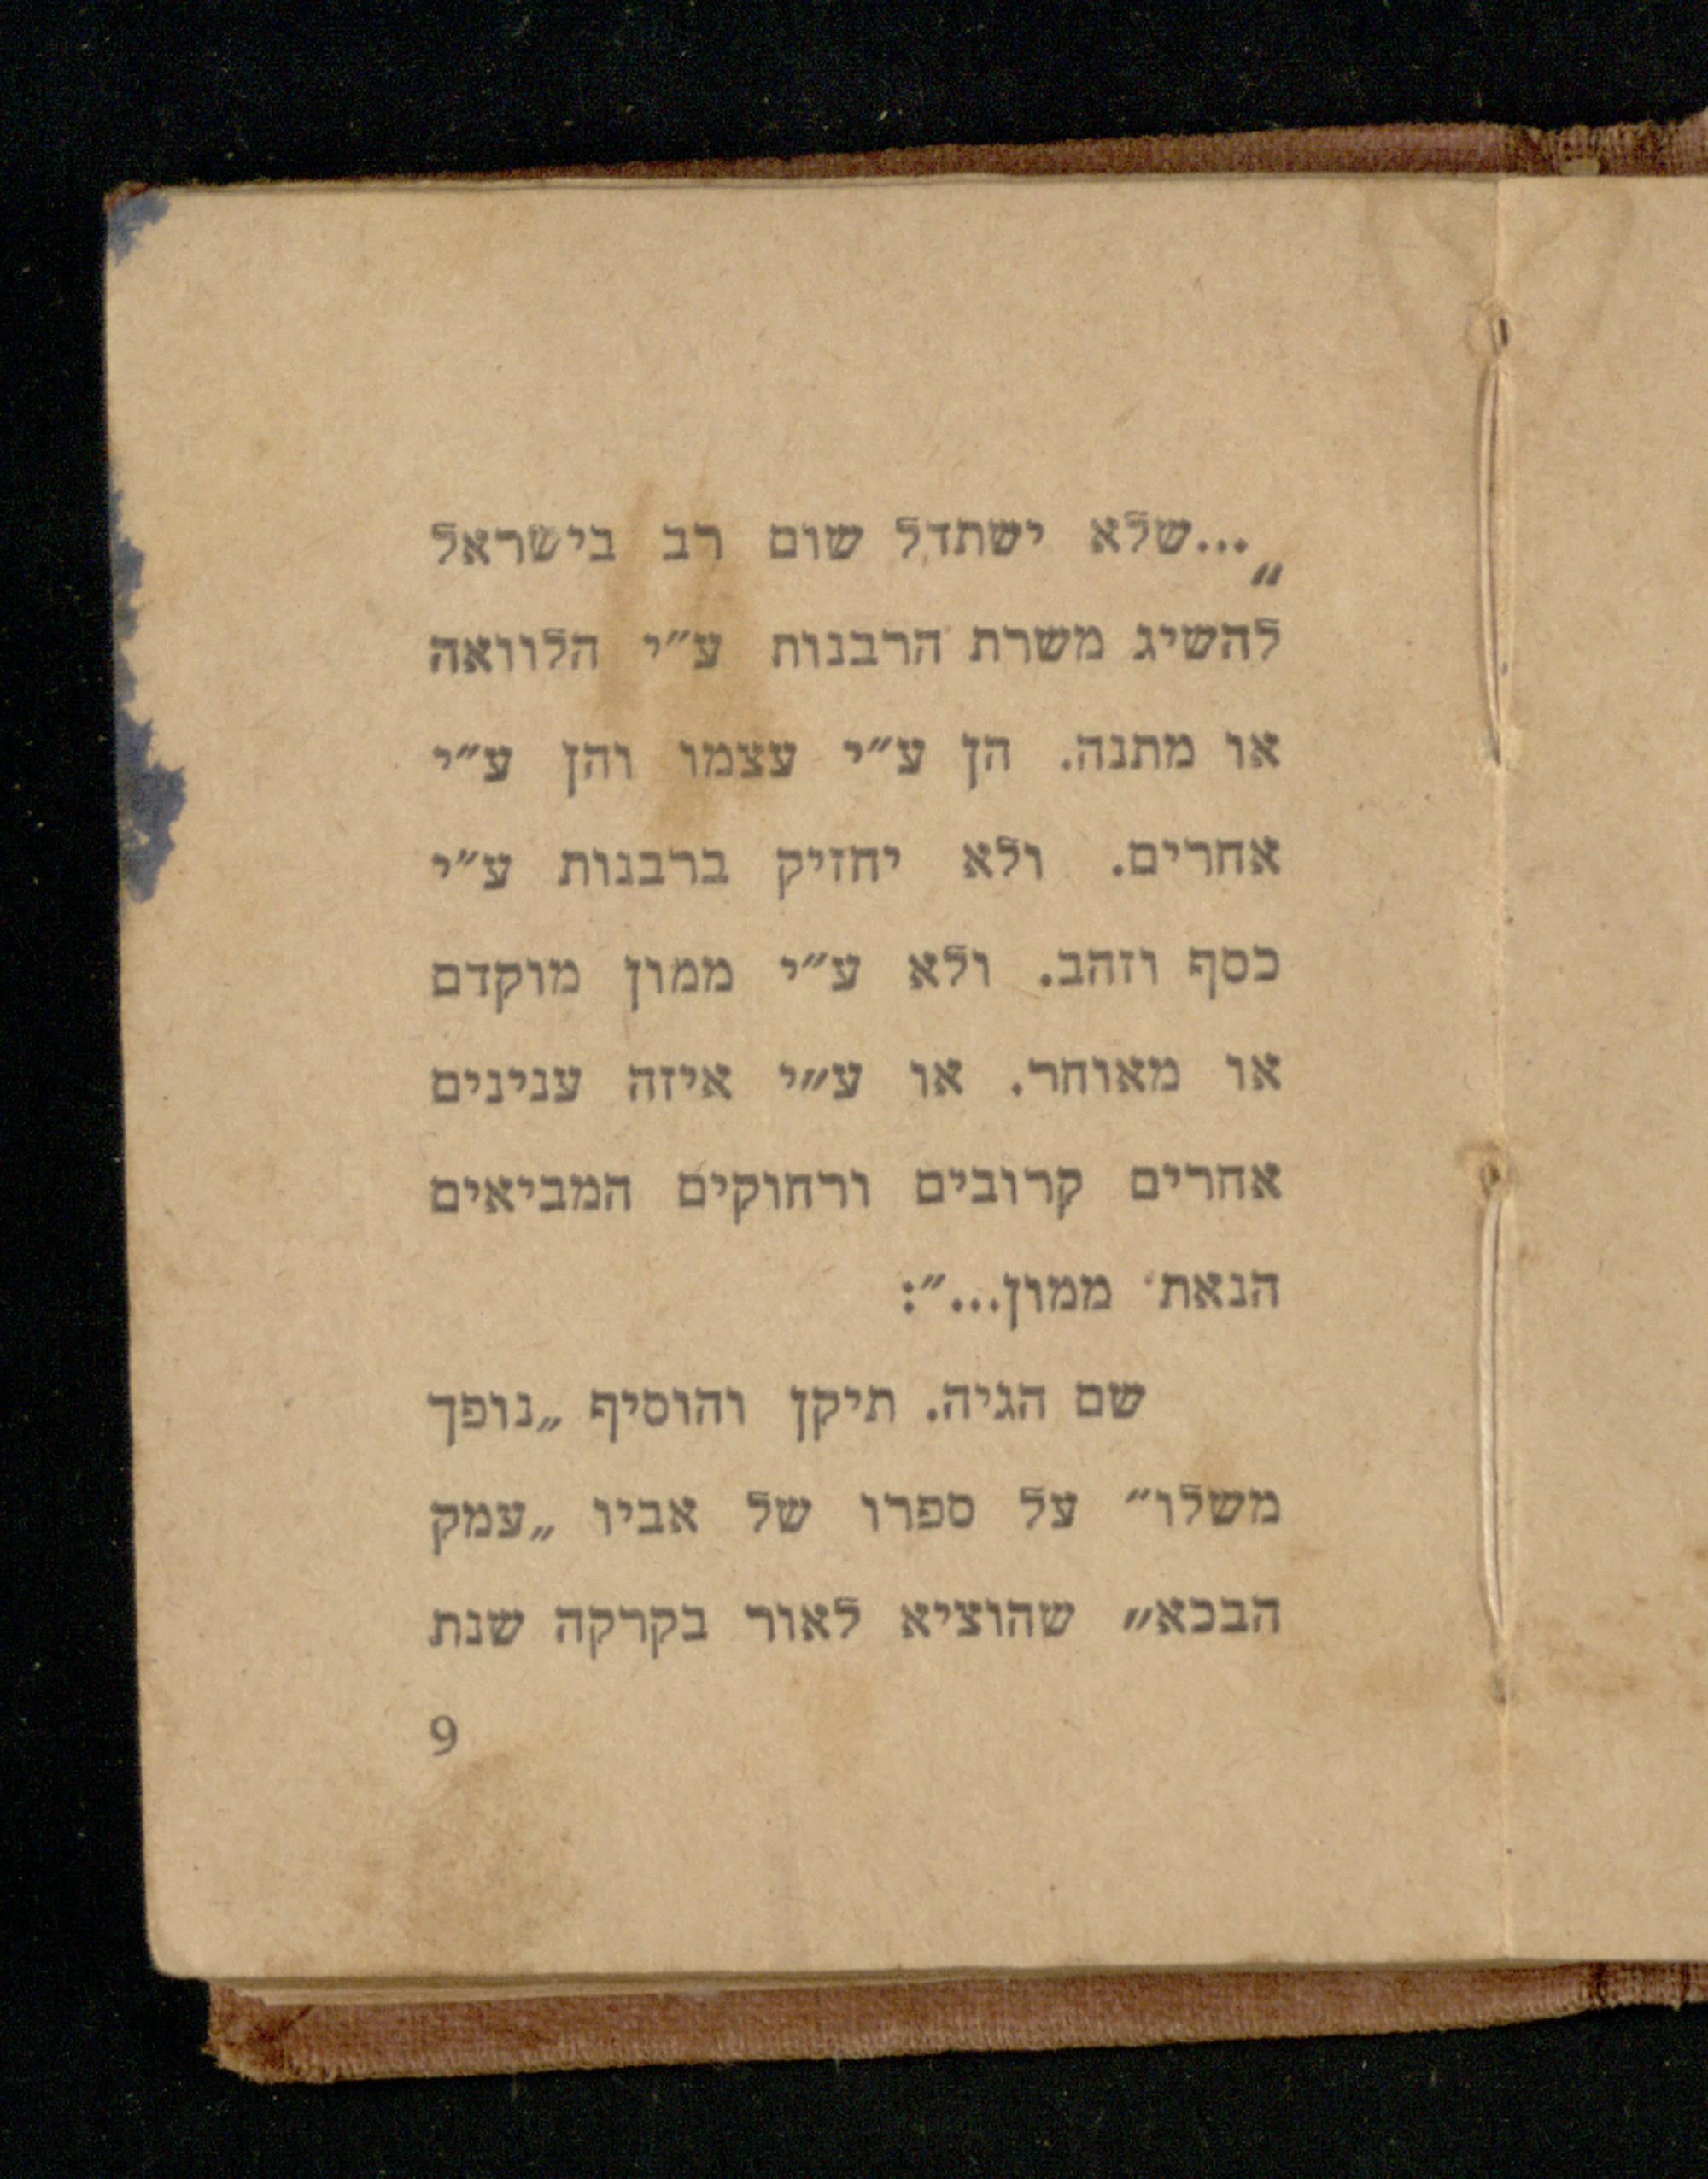 „...שלא ישתדל שום רב בישראל
להשיג משרת הרבנות ע״י הלוואה
או מתנה. הן ע״י עצמו והן ע״י
אחרים. ולא יחזיק ברבנות ע״י
כסף וזהב. ולא ע״י ממון מוקדם
או מאוחר. או ע״י איזה ענינים
אחרים קרובים ורחוקים המביאים
הנאת ממון...״:
שם הגיה. תיקן והוסיף „נופך
משלו״ על ספרו של אביו „עמק
הבכא״ שהוציא לאור בקרקה שנת
9